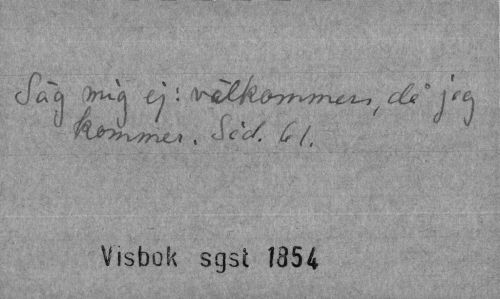 Säg mig ej: välkommen, då jag
kommer. Sid. 61.
Visbok sgst 1854